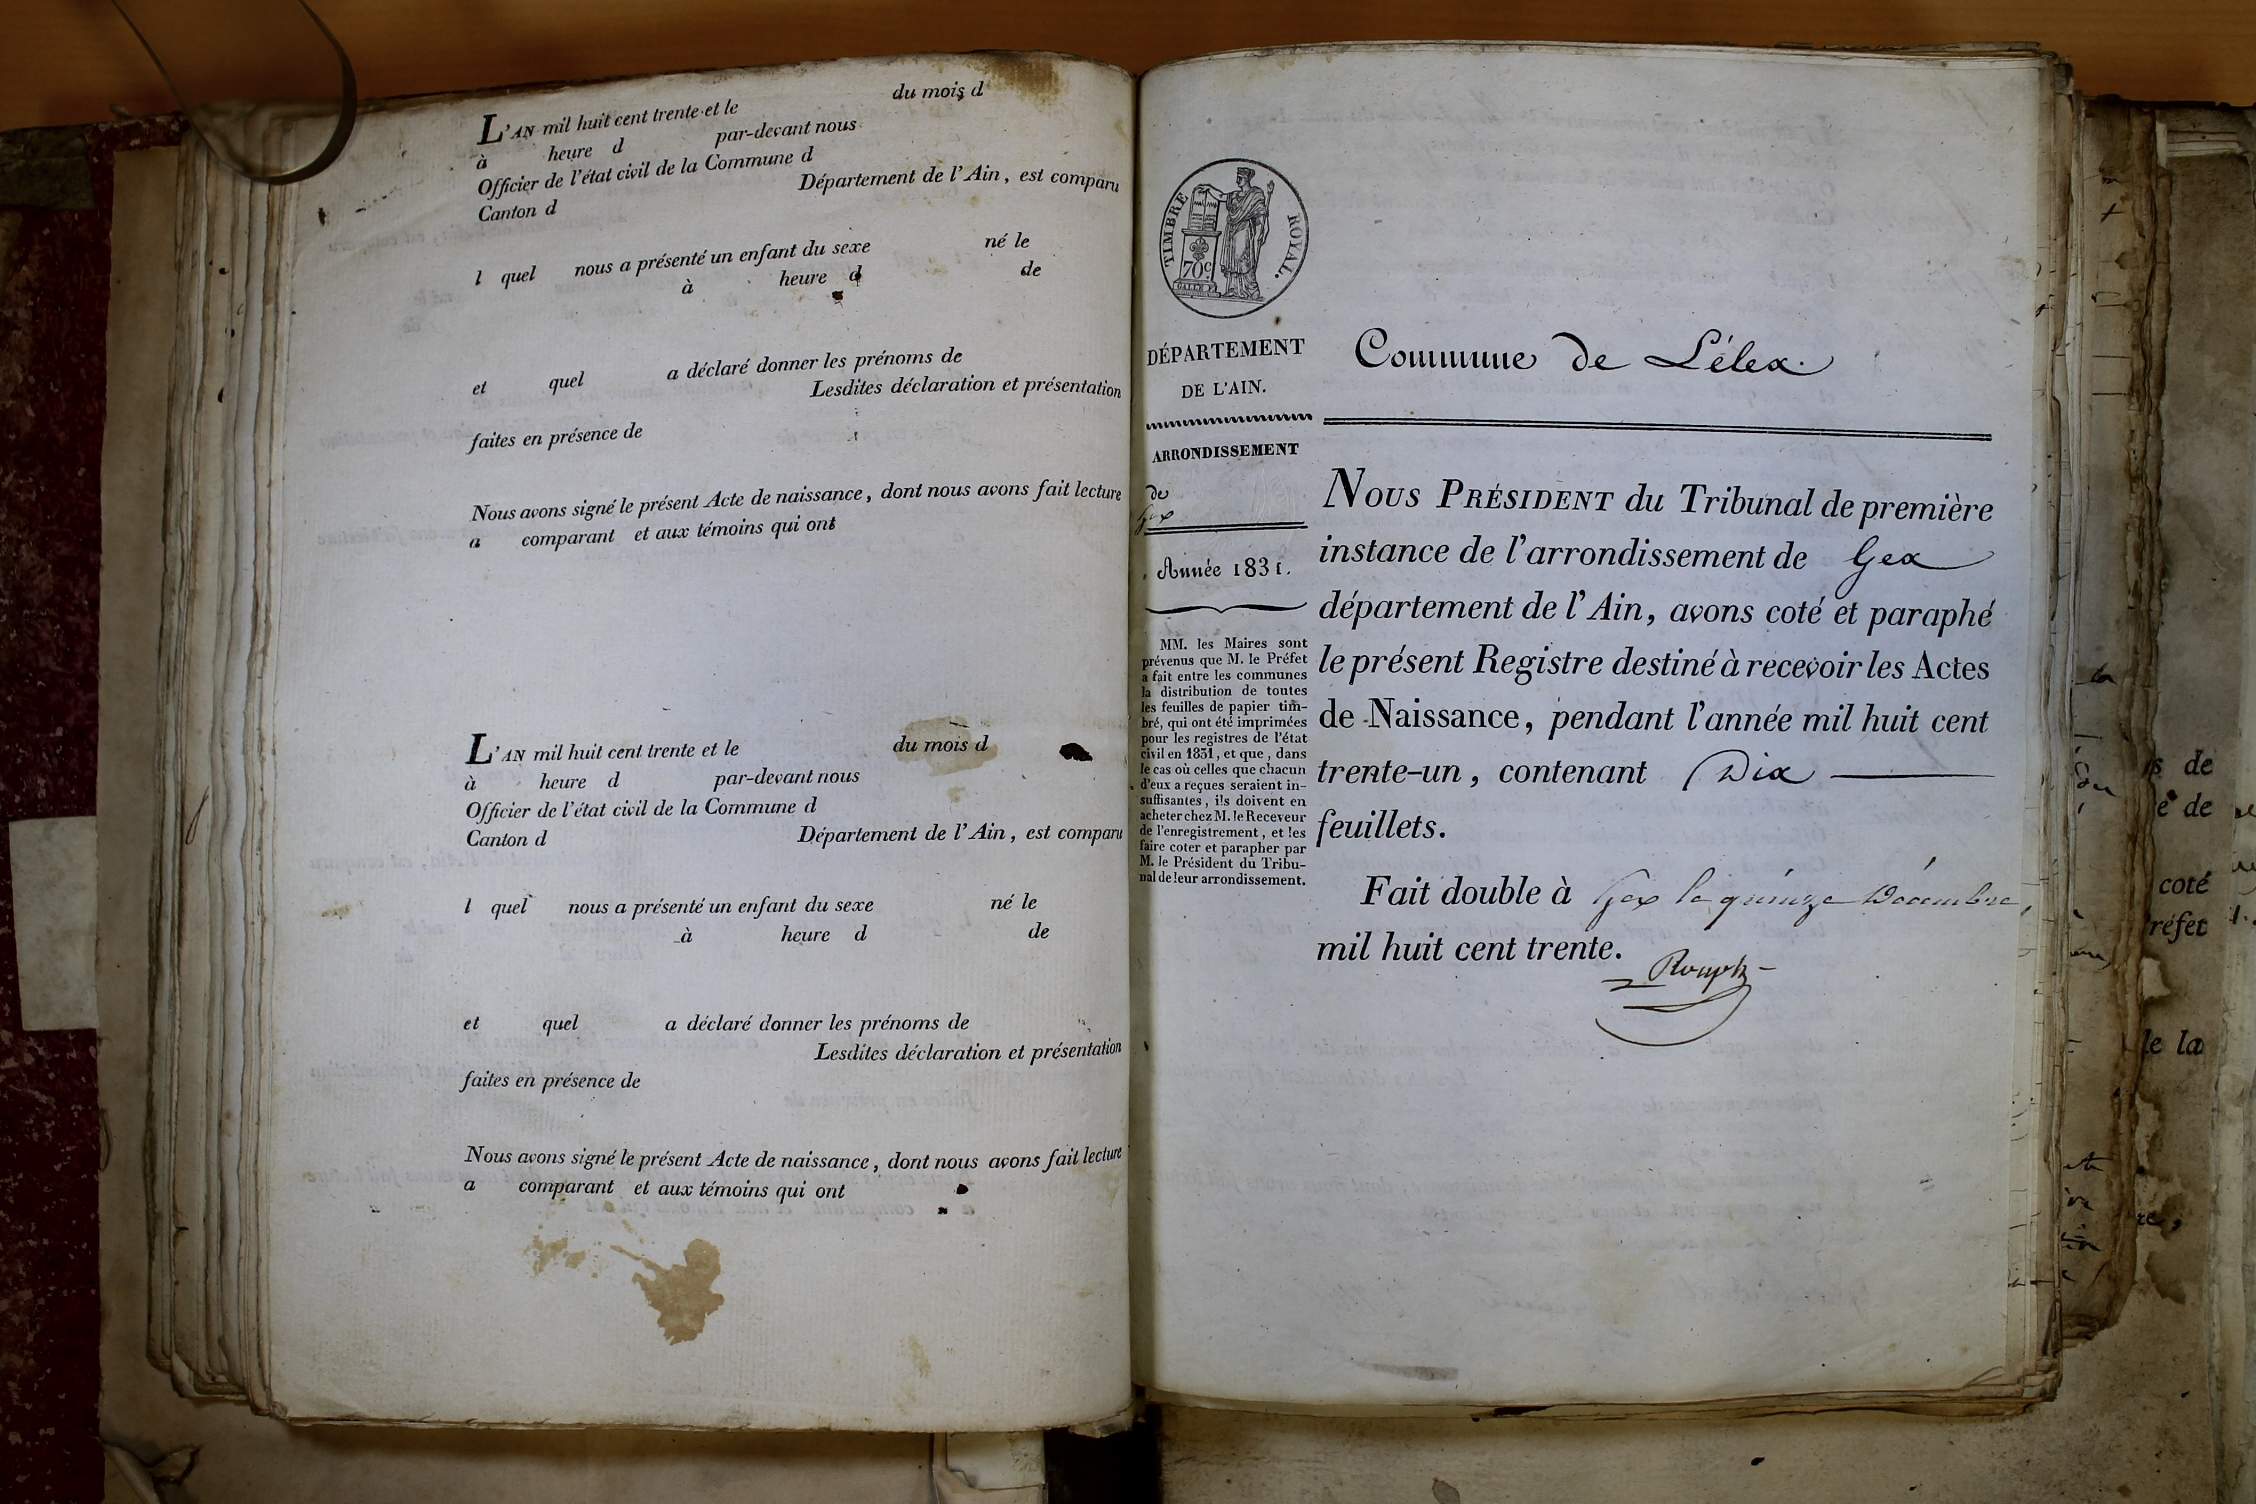 L'AN mil huit cent trente et le du mois d
à heure d par-devant nous
Officier de l'état civil de la Commune d
Canton d Département de l'Ain, est comparu
l quel nous a présenté un enfant du sexe né le
à heure d de
et quel a déclaré donner les prénoms de
Lesdites déclaration et présentation
faites en présence de
Nous avons signé le présent Acte de naissance, dont nous avons fait lecture
a comparant et aux témoins qui ont
L'AN mil huit cent trente et le du mois d
à heure d par-devant nous
Officier de l'état civil de la Commune d
Canton d Département de l'Ain, est comparu
l quel nous a présenté un enfant du sexe né le
à heure d de
et quel a déclaré donner les prénoms de
Lesdites déclaration et présentation
faites en présence de
Nous avons signé le présent Acte de naissance, dont nous avons fait lecture
a comparant et aux témoins qui ont
TIMBRE ROYAL.
70c.
DÉPARTEMENT
DE L'AIN.
ARRONDISSEMENT
de
Gex
Année 1831.
MM. les Maires sont
prévenus que M. le Préfet
a fait entre les communes
la distribution de toutes
les feuilles de papier tim-
bré, qui ont été imprimées
pour les registres de l'état
civil en 1831, et que, dans
le cas où celles que chacun
d'eux a reçues seraient in-
suffisantes, ils doivent en
acheter chez M. le Receveur
de l'enregistrement, et les
faire coter et parapher par
M. le Président du Tribu-
nal de leur arrondissement.
Commune de Lélex.
NOUS PRÉSIDENT du Tribunal de première
instance de l'arrondissement de Gex
département de l'Ain, avons coté et paraphé
le présent Registre destiné à recevoir les Actes
de Naissance, pendant l'année mil huit cent
trente-un, contenant Dix
feuillets.
Fait double à Gex le quinze Décembre,
mil huit cent trente.
de
de
coté
réfet
le la